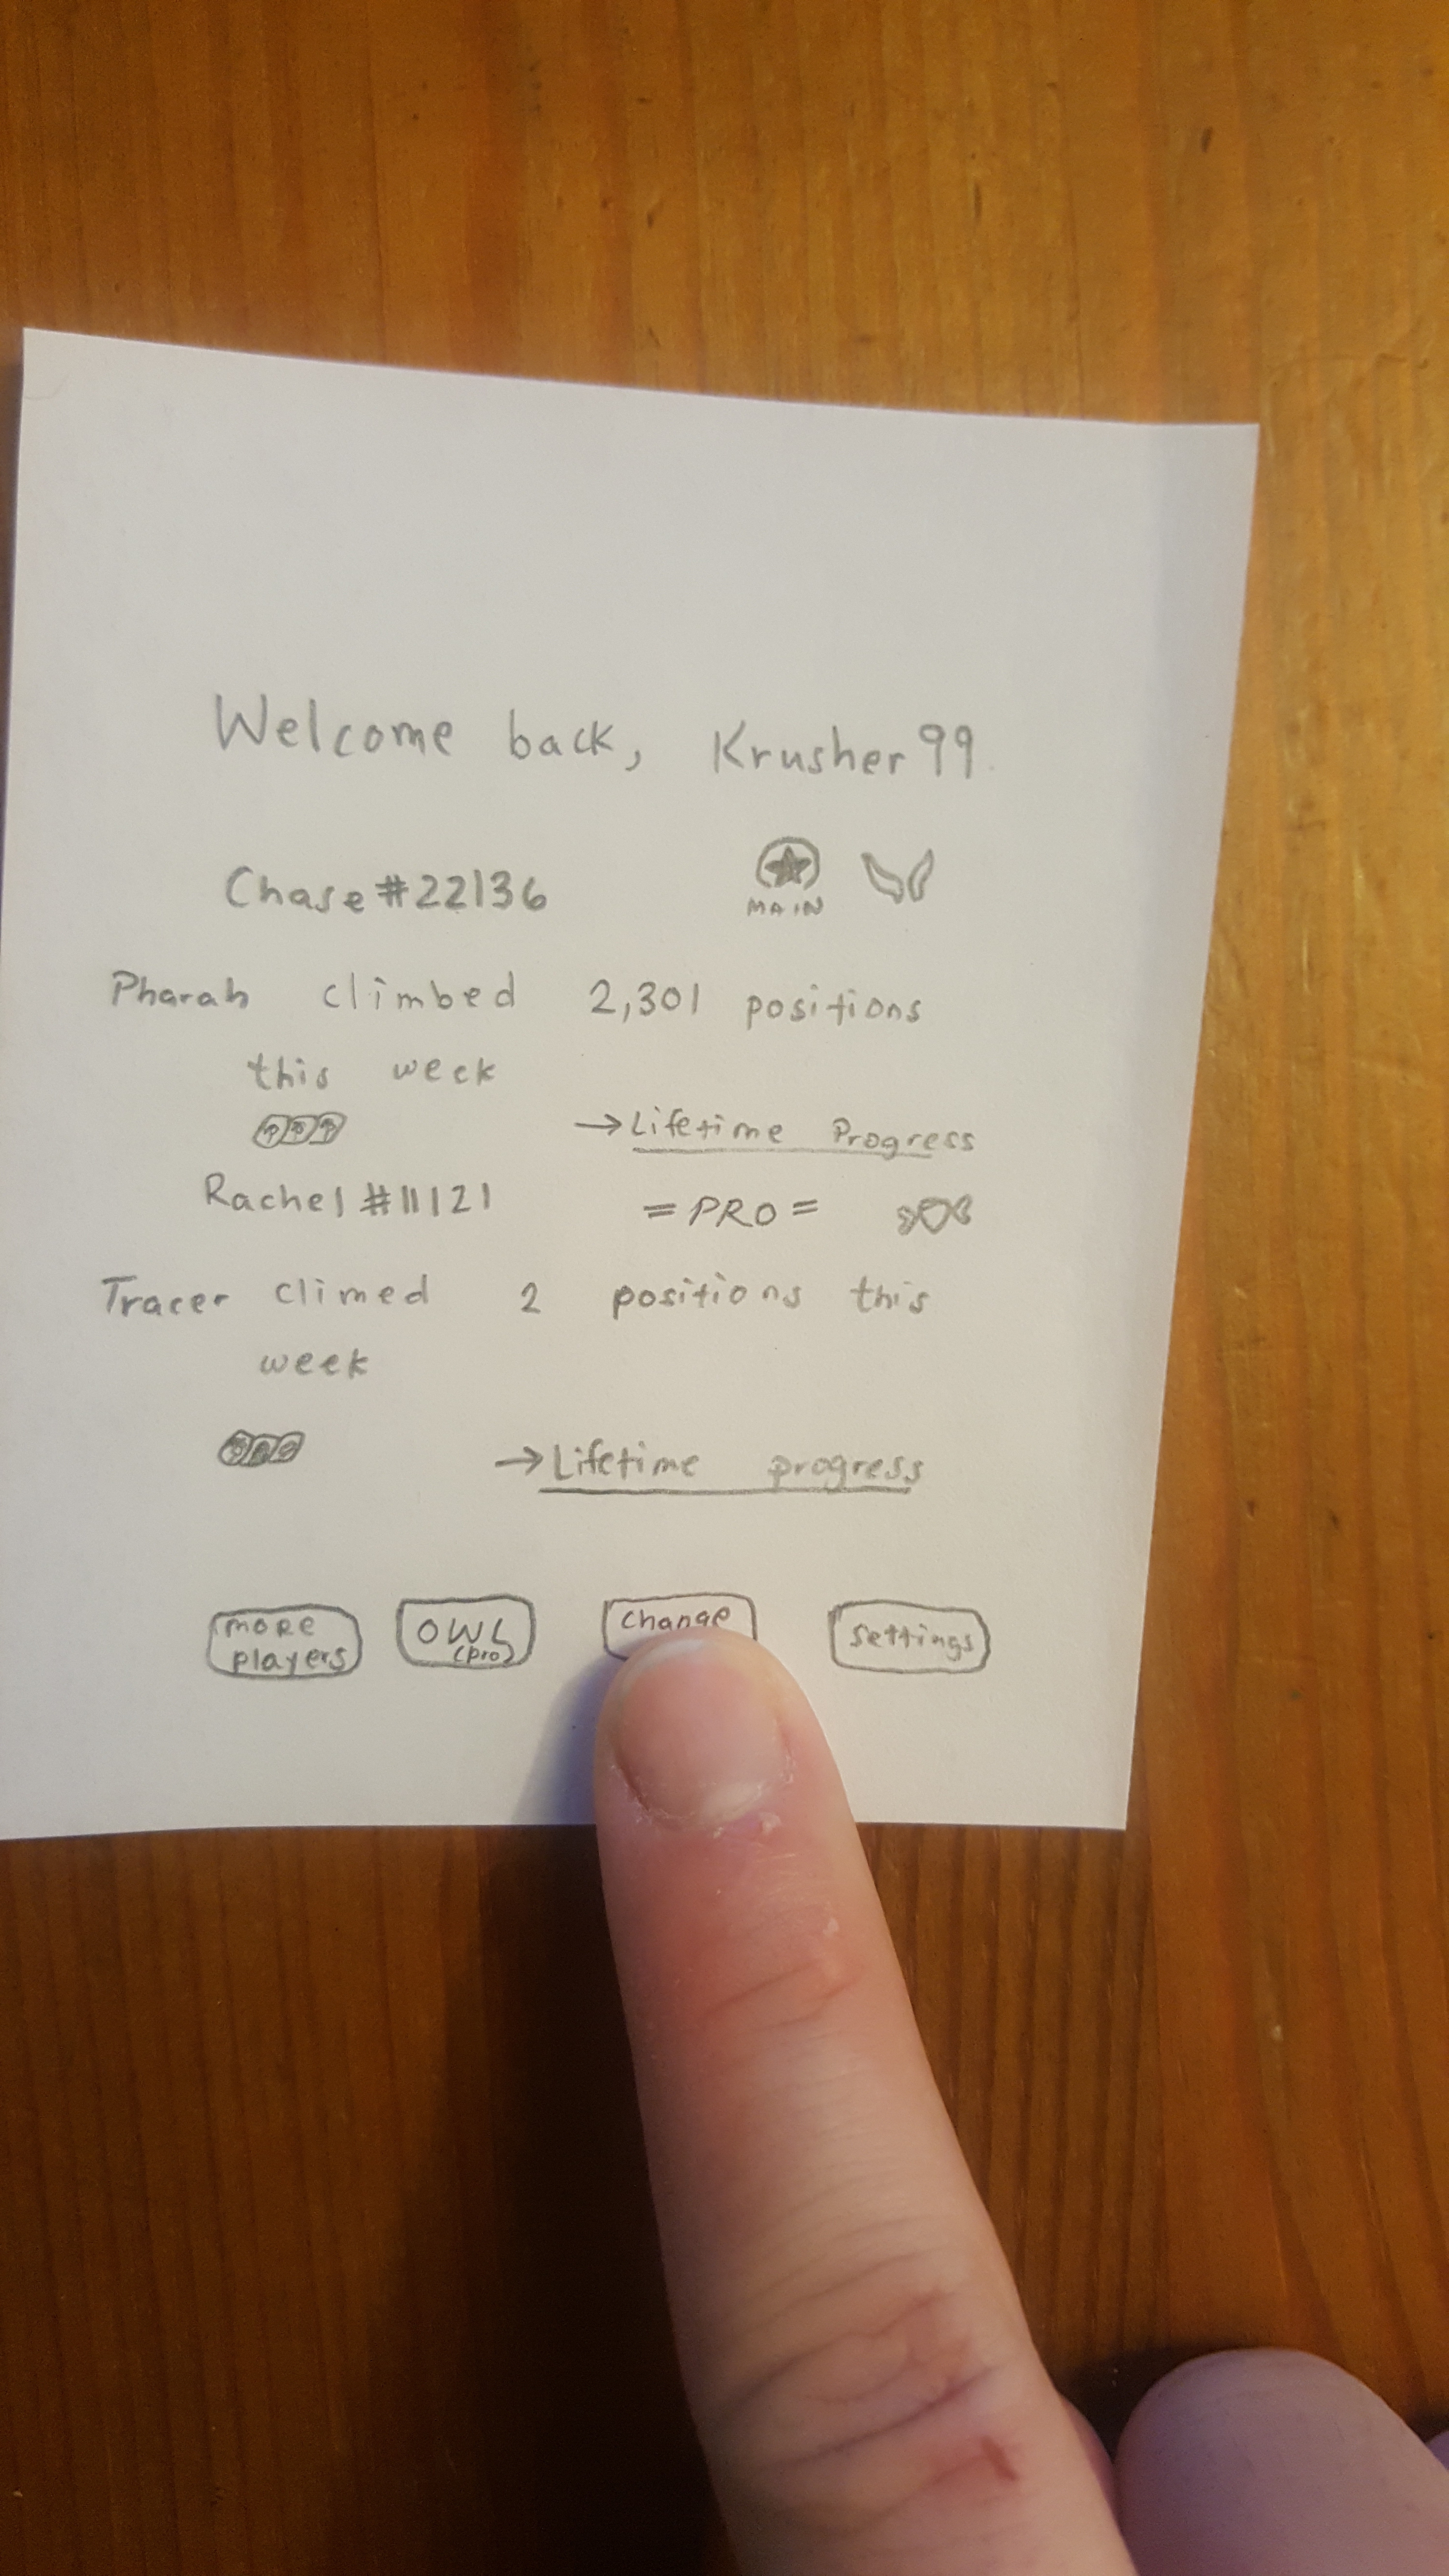 Welcome back, Krusher99
Chase#22136
MAIN
Pharah climbed 2,301 positions
this week
→Lifetime Progress
Rachel#11121 =PRO=
Tracer climed 2 positions this
week
→Lifetime progress
more
players
OWL
(pro)
change
settings